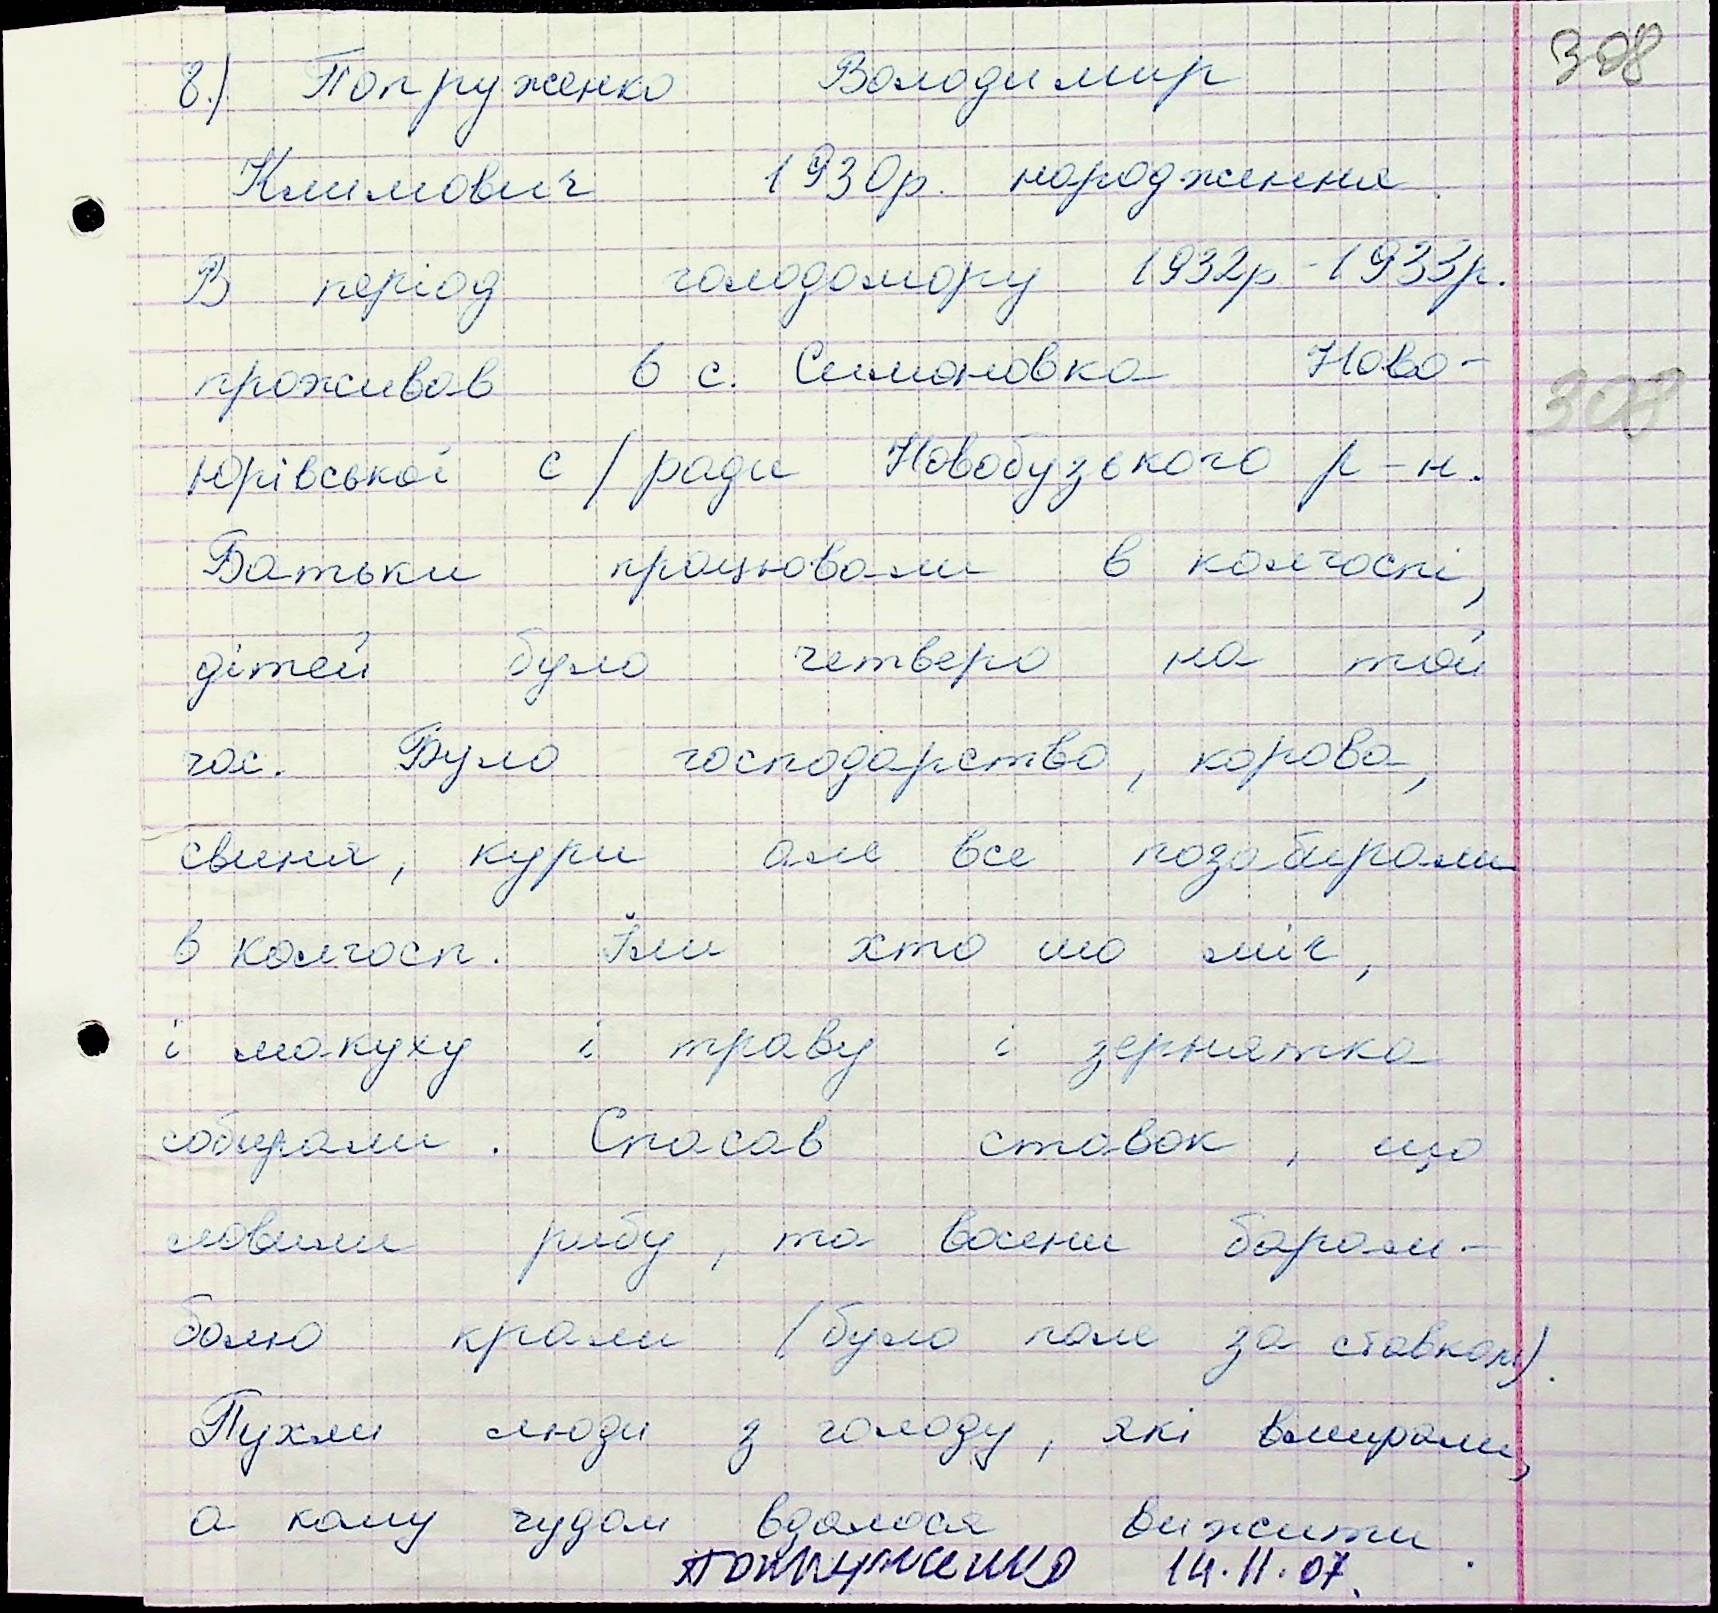 308
8.) Попруженко Володимир
Климович 1930р. народження.
В період голодомору 1932р - 1933р.
проживав в с. Симоновка Ново-
юрівської с/ради Новобузького р-н.
Батьки працювали в колгоспі,
308
дітей було четверо на той
час. Було господарство, корова,
свиня, кури але все позабирали
в колгосп. Їли хто шо міг,
і макуху і траву і зернятка
собирали. Спасав ставок, що
ловили рибу, та восени барам-
болю крали (було поле за ставком).
Пухли люди з голоду, які вмирали,
а кому чудом вдалося вижити.
Попруженко 14.11.07.